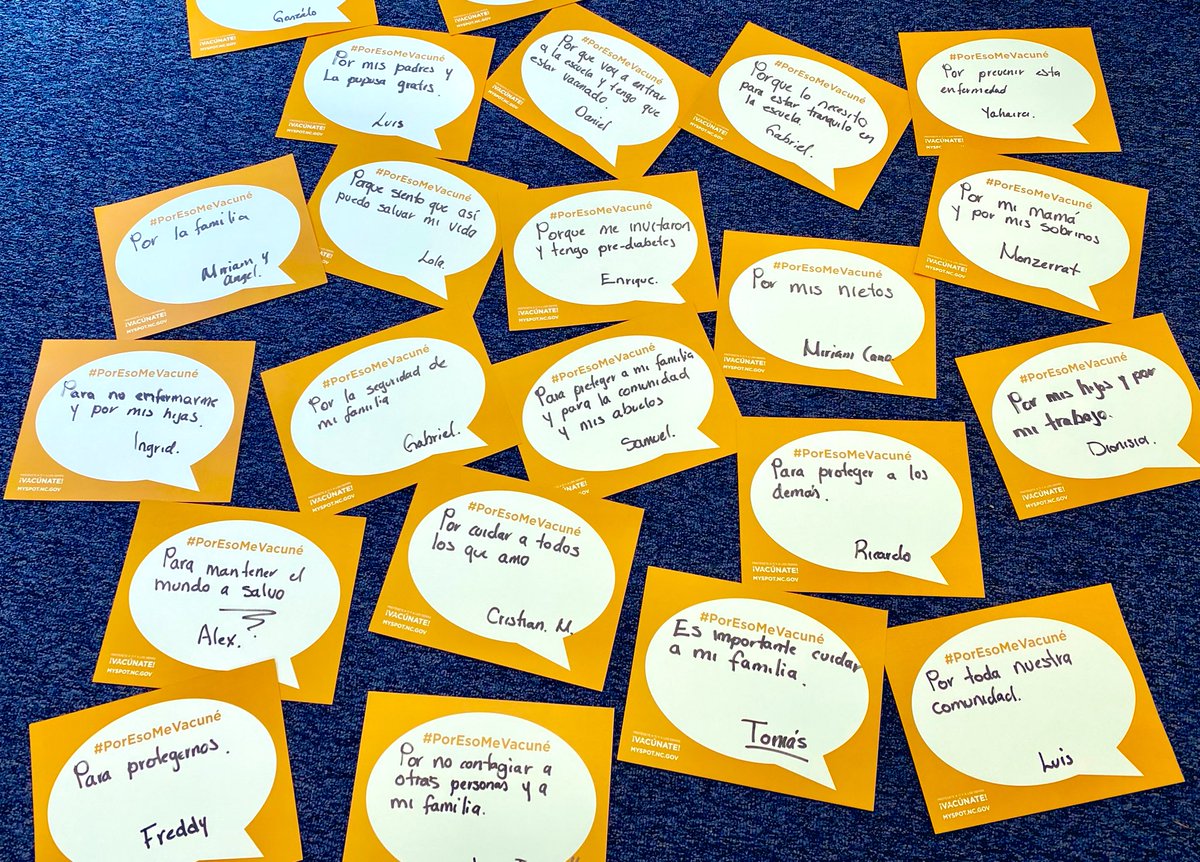 Gonzálo
¡VACÚNATE!
MYSPOT.NC.GOV
#PorEsoMeVacuné
Por mis padres y
La pupusa gratis.
Luis
¡VACÚNATE!
MYSPOT.NC.GOV
#PorEsoMeVacuné
Por que voy a entrar
a la escuela y tengo que
estar vacunado.
Daniel
¡VACÚNATE!
MYSPOT.NC.GOV
#PorEsoMeVacuné
Porque lo necesito
para estar tranquilo en
la escuela.
Gabriel.
#PorEsoMeVacuné
Por prevenir esta
enfermedad
Yahaira.
¡VACÚNATE!
#PorEsoMeVacuné
Por la familia
Miriam y
angel.
¡VACÚNATE!
MYSPOT.NC.GOV
#PorEsoMeVacuné
Porque siento que así
puedo salvar mi vida
Lola.
#PorEsoMeVacuné
Porque me invitaron
y tengo pre-diabetes
Enrique.
#PorEsoMeVacuné
Por mis nietos
Miriam Cano
¡VACÚNATE!
MYSPOT.NC.GOV
#PorEsoMeVacuné
Por mi mamá
y por mis sobrinos
Monzerrat
¡VACÚNATE!
MYSPOT.NC.GOV
#PorEsoMeVacuné
Para no enfermarme
y por mis hijas.
Ingrid.
¡VACÚNATE!
MYSPOT.NC.GOV
#PorEsoMeVacuné
Por la seguridad de
mi familia
Gabriel.
¡VACÚNATE!
MYSPOT.NC.GOV
#PorEsoMeVacuné
Para proteger a mi familia
y para la comunidad
y mis abuelos
Samuel.
#PorEsoMeVacuné
Para proteger a los
demás.
Ricardo
¡VACÚNATE!
MYSPOT.NC.GOV
#PorEsoMeVacuné
Por mis hijs y por
mi trabajo.
Dionisia.
¡VACÚNATE!
MYSPOT.NC.GOV
#PorEsoMeVacuné
Para mantener el
mundo a salvo
Alex.
¡VACÚNATE!
MYSPOT.NC.GOV
#PorEsoMeVacuné
Por cuidar a todos
los que amo
Cristian. M.
¡VACÚNATE!
MYSPOT.NC.GOV
#PorEsoMeVacuné
Es importante cuidar
a mi familia.
Tomás
¡VACÚNATE!
MYSPOT.NC.GOV
#PorEsoMeVacuné
Por toda nuestra
comunidad.
Luis
¡VACÚNATE!
MYSPOT.NC.GOV
#PorEsoMeVacuné
Para protegernos.
Freddy
#PorEsoMeVacuné
Por no contagiar a
otras personas y a
mi familia.